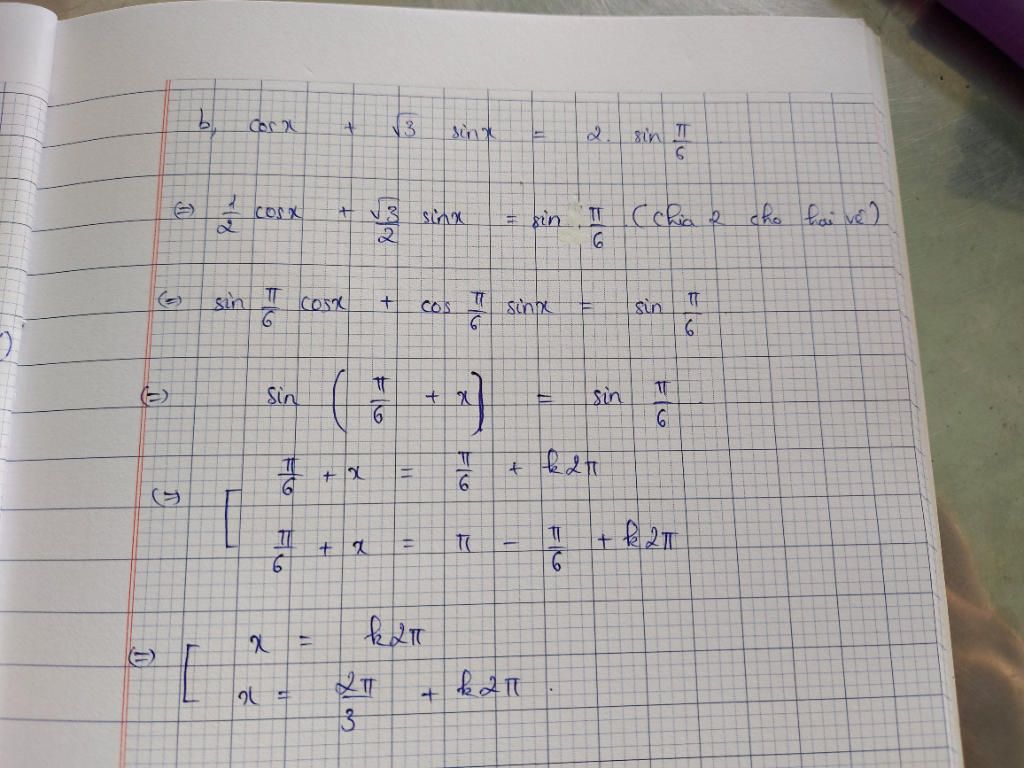 b, cosx + √3 sinx = 2. sin π/6
(=) 1/2 cosx + √3/2 sinx = sin π/6 (chia 2 cho hai vế)
(=) sin π/6 cosx + cos π/6 sinx = sin π/6
(=) sin (π/6 + x) = sin π/6
(=) [ π/6 + x = π/6 + k2π
π/6 + x = π - π/6 + k2π
(=) [ x = k2π
x = 2π/3 + k2π.